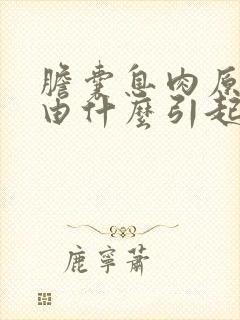 膽囊息肉原
由什麼引起
鹿寧蕭